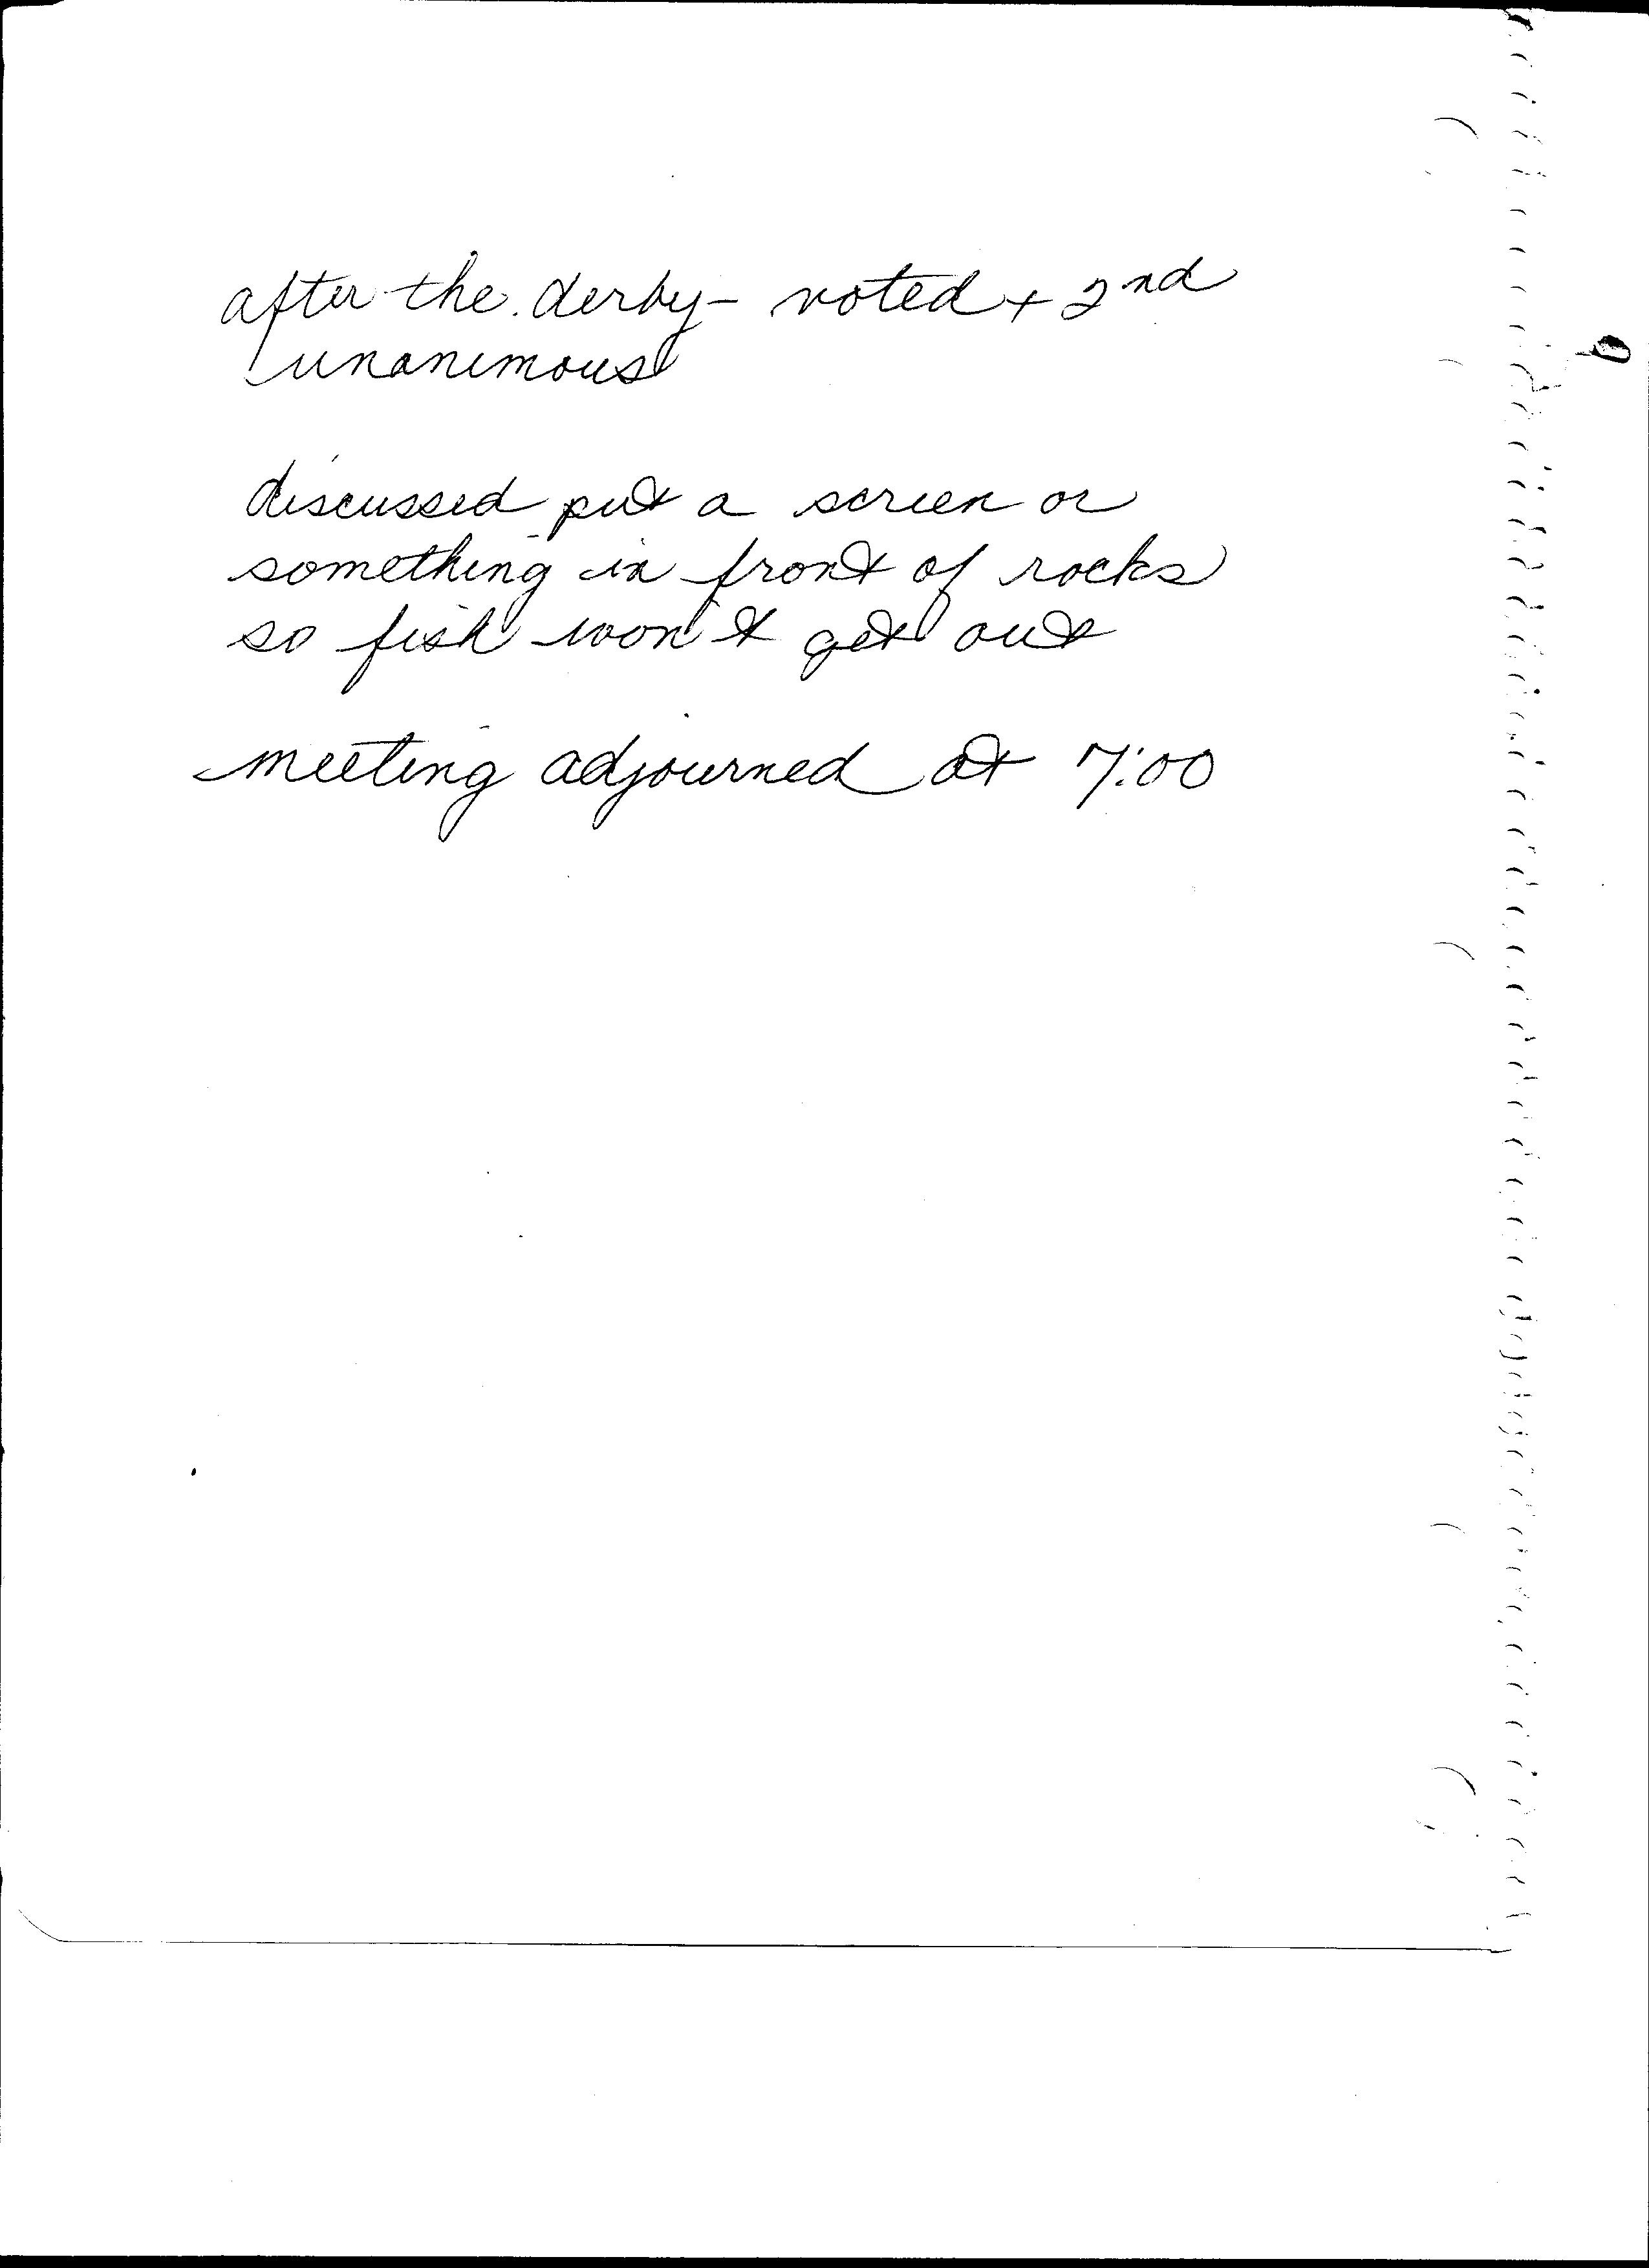 after the derby - voted + 2nd
unanimous
discussed put a screen or
something in front of rocks
so fish won't get out
meeting adjourned at 7:00